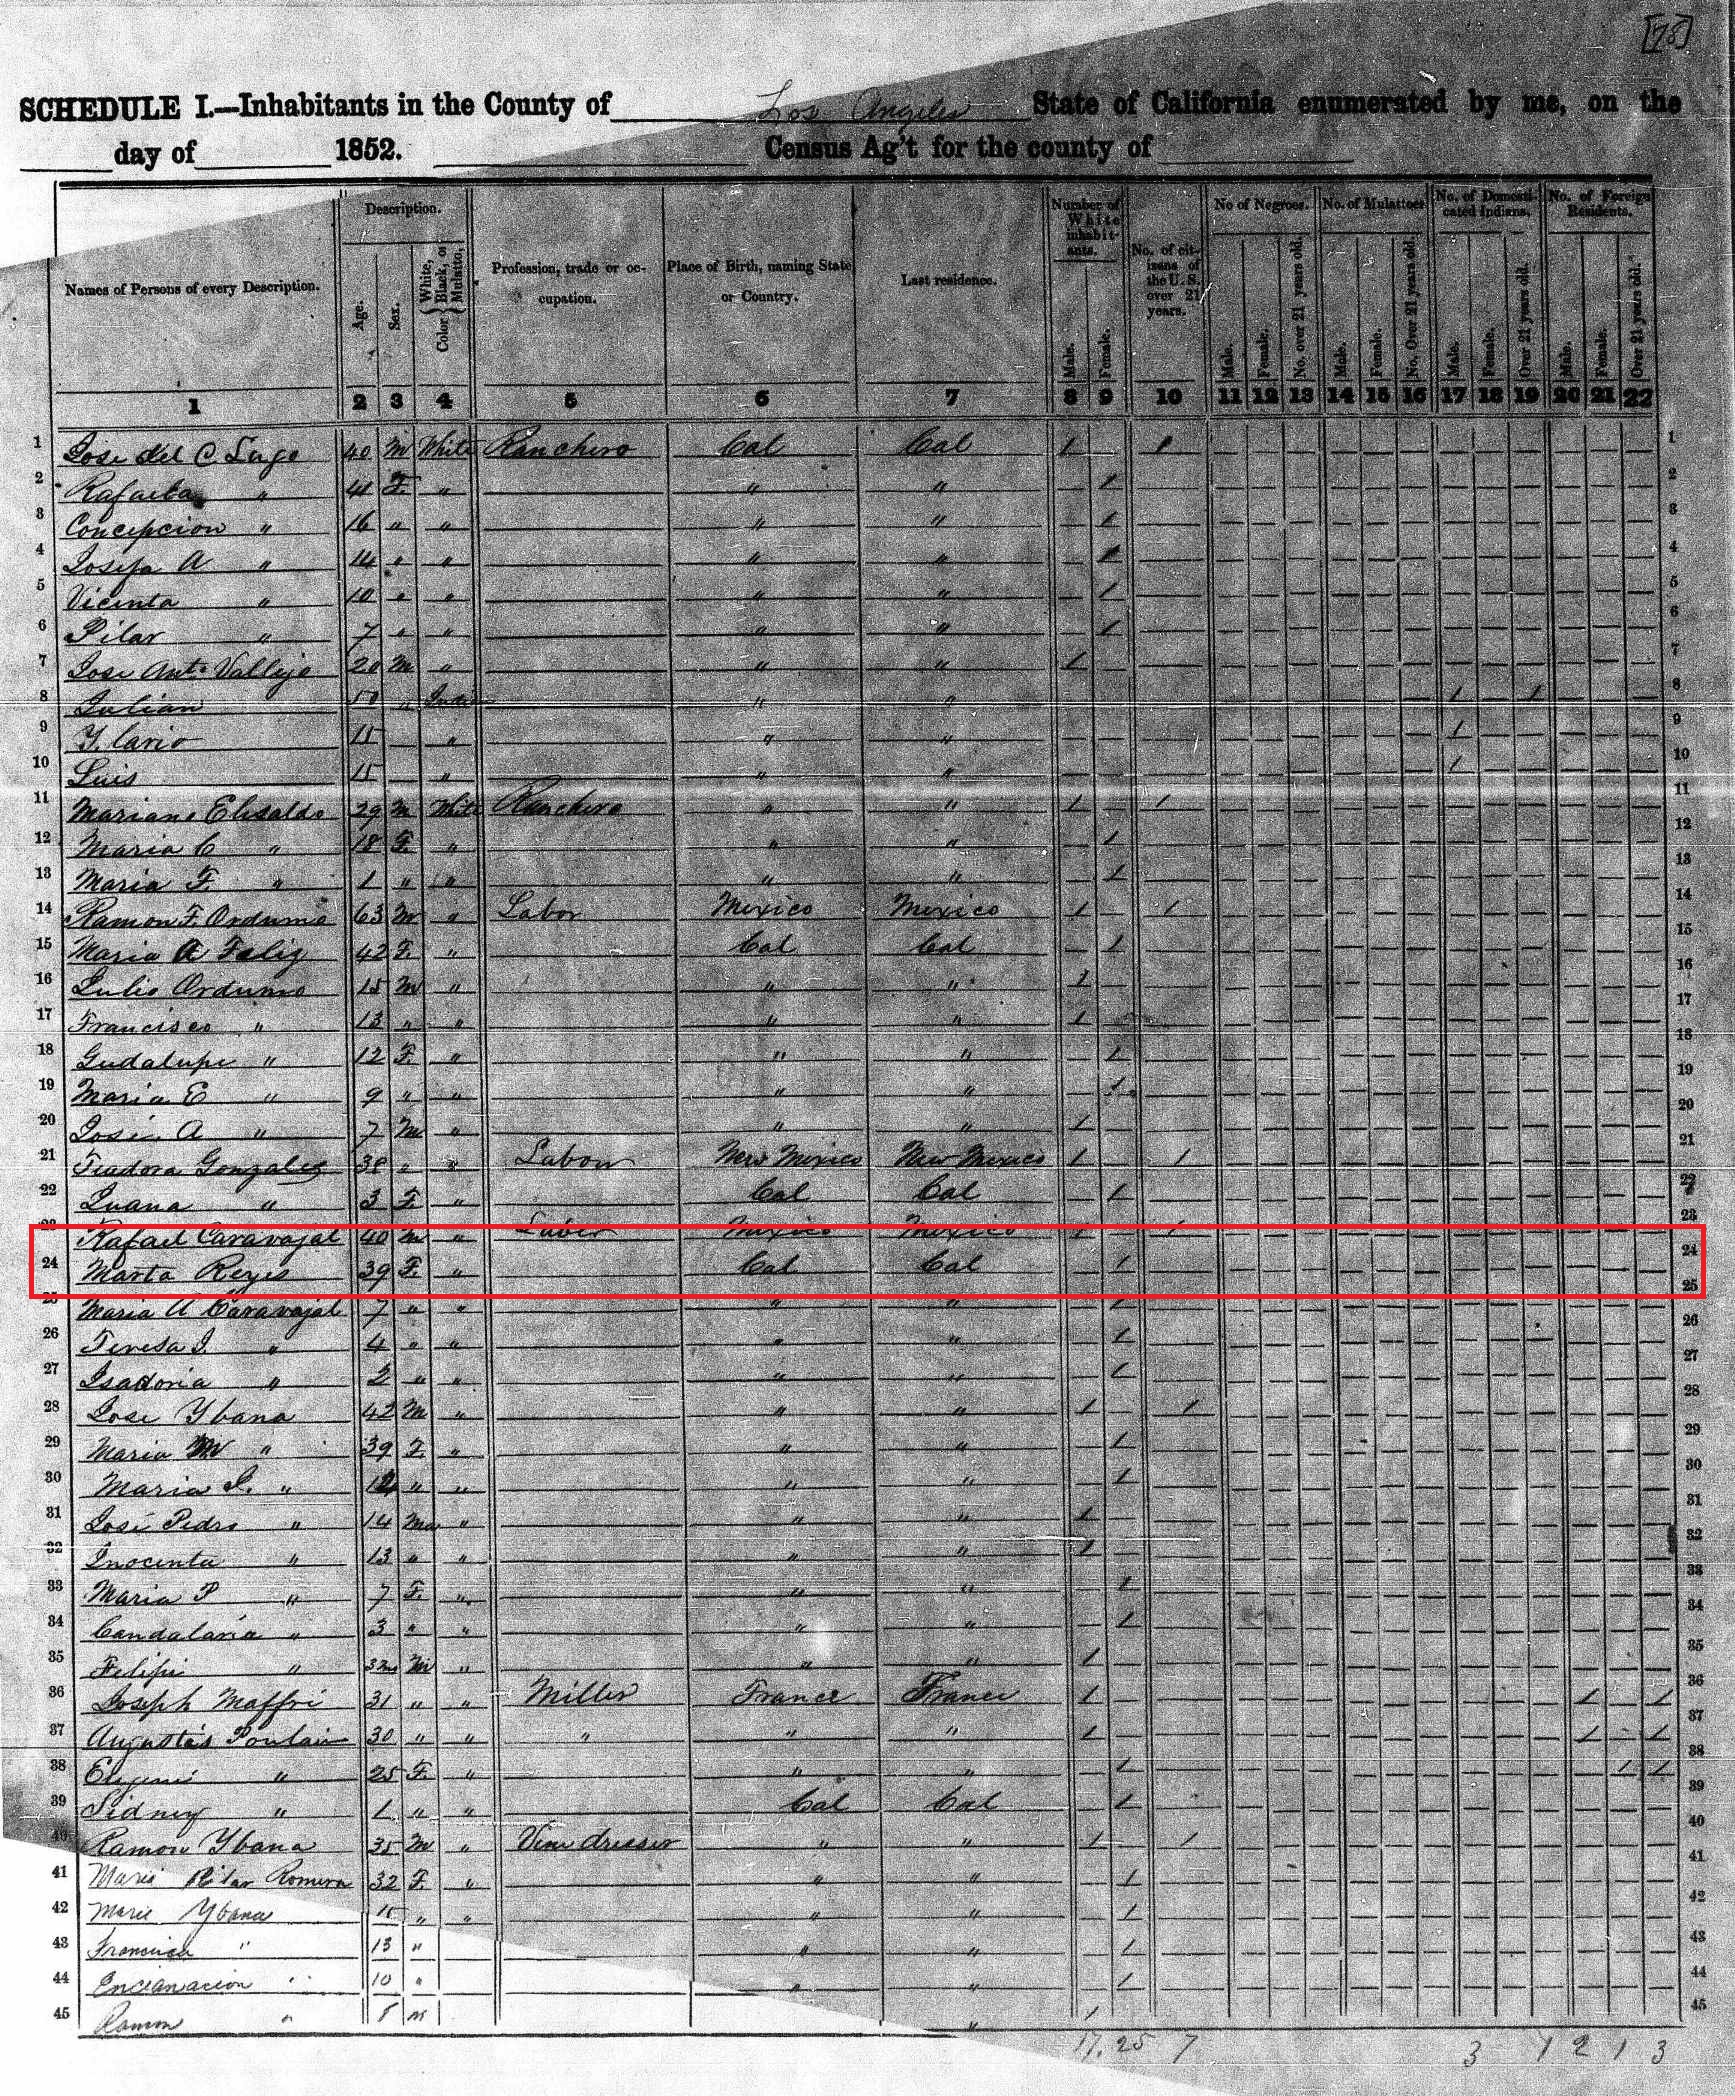 [78]
SCHEDULE I.—Inhabitants in the County of Los Angeles State of California enumerated by me, on the
day of 1852. Census Ag't for the county of
Names of Persons of every Description. Description. Age. Sex. Color White, Black, or Mulatto, Profession, trade or occupation. Place of Birth, naming State or Country. Last residence. Number of White inhabitants. Male. Female. No. of citizens of the U.S. over 21 years. No of Negroes. Male. Female. No. over 21 years old. No. of Mulattoes Male. Female. No. Over 21 years old. No. of Domesticated Indians. Male. Female. Over 21 years old. No. of Foreign Residents. Male. Female. Over 21 years old.
1 2 3 4 5 6 7 8 9 10 11 12 13 14 15 16 17 18 19 20 21 22
1 Jose del C Lugo 40 M White Ranchero Cal Cal 1 1 1
2 Rafaela " 41 F. " " " 1 2
3 Concepcion " 16 " " " " 1 3
4 Josefa A " 14 " " " " 1 4
5 Vicinta " 10 " " " " 1 5
6 Pilar " 7 " " " " 1 6
7 Jose Anto Vallejo 20 M " " " 1 7
8 Julian 50 " Indian " " 1 1 8
9 Y. lario 15 " " " 1 9
10 Luis 15 " " " 1 10
11 Mariano Elisaldo 29 M White Ranchero " " 1 1 11
12 Maria C " 18 F. " " " 1 12
13 Maria F. " 1 " " " " 1 13
14 Ramon F. Ordumo 63 M " Labor Mexico Mexico 1 1 14
15 Maria A Feliz 42 F. " Cal Cal 1 15
16 Julio Ordumo 15 M " " " 1 16
17 Francisco " 13 " " " " 1 17
18 Gudalupe " 12 F. " " " 1 18
19 Maria E " 9 " " " " 1 19
20 Jose A " 7 M " " " 1 20
21 Teadora Gonzales 38 " " Labour New Mexico New Mexico 1 1 21
22 Juana " 3 F. " Cal Cal 1 22
23 Rafael Caravajal 40 M " Labor Mexico Mexico 1 1 23
24 Marta Reyes 39 F. " Cal Cal 1 24
25 Maria A Caravajal 7 " " " " 1 25
26 Teresa J. " 4 " " " " 1 26
27 Isadoria " 2 " " " " 1 27
28 Jose Ybana 42 M " " " 1 1 28
29 Maria M " 39 F. " " " 1 29
30 Maria J. " " " " " 1 30
31 José Pedro " 14 M " " " 1 31
32 Inocenta " 13 " " " " 1 32
33 Maria P " 7 F. " " " 1 33
34 Candalaria " 3 " " " " 1 34
35 Felipi " M " " " 1 35
36 Joseph Maffri 31 " " Miller France France 1 1 1 36
37 Augustas Poulain 30 " " " " " 1 1 1 37
38 Eugeni " 25 F. " " " 1 1 1 38
39 Sidney " 1 " " Cal Cal 1 39
40 Ramon Ybana 35 M " Vine dresser " " 1 1 40
41 Maria Pilar Romera 32 F. " " " 1 41
42 Marie Ybana 15 " " " " 1 42
43 Francisca " 13 " " " 1 43
44 Encarnacion " 10 " " " 1 44
45 Ramon " 8 M " 1 45
17. 25 7 3 1 2 1 3